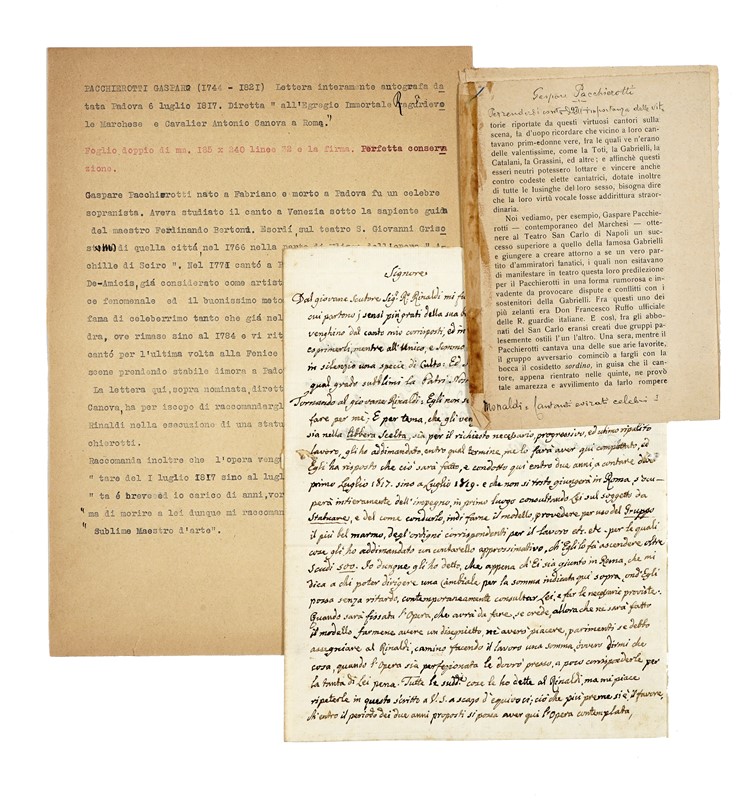 PACCHIEROTTI GASPARO (1744 - 1821) Lettera interamente autografa da
tata Padova 6 luglio 1817. Diretta " all'Egregio Immortale Ragurdevo
le Marchese e Cavalier Antonio Canova a Roma."
Foglio doppio di mm. 185 x 240 linee 32 e la firma. Perfetta conserva
zione.
Gaspare Pacchierotti nato a Fabriano e morto a Padova fu un celebre
sopranista. Aveva studiato il canto a Venezia sotto la sapiente guida
del maestro Ferdinando Bertoni. Esordí sul teatro S. Giovanni Griso
di quella cittá nel 1766 nella
chille di Sciro ". Nel 1771 cantó a
De-Amicis, giá considerato come artist
ce fenomenale ed il buonissimo meto
fama di celeberrimo tanto che giá nel
dra, ove rimase sino al 1784 e vi rit
cantó per l'ultima volta alla Fenice
scene prendendo stabile dimora a Pado
La lettera qui, sopra nominata, dirett
Canova, ha per iscopo di raccomandargl
Rinaldi nella esecuzione di una statu
chierotti.
Raccomanda inoltre che l'opera veng
" tare del I luglio 1817 sino al lugl
" ta é breve ed io carico di anni, vor
"ma di morire a lei dunque mi raccoman
" Sublime Maestro d'arte".
Gaspare Pacchierotti
Per rendersi conto dell'importanza delle vit
torie riportate da questi virtuosi cantori sulla
scena, fa d'uopo ricordare che vicino a loro can-
tavano prim-edonne vere, fra le quali ve n'erano
delle valentissime, come la Toti, la Gabrielli, la
Catalani, la Grassini, ed altre; e affinchè questi
esseri neutri potessero lottare e vincere anche
contro codeste elette cantatrici, dotate inoltre
di tutte le lusinghe del loro sesso, bisogna dire
che la loro virtù vocale fosse addirittura straor-
dinaria.
Noi vediamo, per esempio, Gaspare Pacchie-
rotti — contemporaneo del Marchesi — otte-
nere al Teatro San Carlo di Napoli un suc-
cesso superiore a quello della famosa Gabrielli
e giungere a creare attorno a se un vero par-
tito d'ammiratori fanatici, i quali non esitavano
di manifestare in teatro questa loro predilezione
per il Pacchierotti in una forma rumorosa e in-
vadente da provocare dispute e conflitti con i
sostenitori della Gabrielli. Fra questi uno dei
più zelanti era Don Francesco Ruffo ufficiale
delle R. guardie italiane. E così, fra gli abbo-
nati del San Carlo eransi creati due gruppi pa-
lesemente ostili l'un l'altro. Una sera, mentre il
Pacchierotti cantava una delle sue arie favorite,
il gruppo avversario cominciò a fargli con la
bocca il cosidetto sordino, in guisa che il can-
tatore, appena rientrato nelle quinte, ne provò
tale amarezza e avvilimento da farlo rompere
Monaldi: Cantanti evirati celebri
Signore
Dal giovane Scutore Sigr. Rinaldi mi fu
cui portono i sensi più grati della sua b
venghino dal canto mio corrisposti, ed in
esprimerli, mentre all'Unico, e Sovrano
in silenzio una specie di Culto: Ed
qual grado sublimi la Patri
Tornando al giovane Rinaldi: Egli non se
fare per me; E per tema, che gli ven
sia nella libbera Scelta, sia per il richiesto necessario progressivo, ed utimo ripolito
lavoro, gli ho addimandato, entro qual termine, me lo farà aver qui completato, ed
Egli ha risposto che ciò sarà fatto, e condotto qui entro due anni, a contare dal
primo Luglio 1817. sino a Luglio 1819. e che non si tosto giungerà in Roma s'ocu-
perà intieramente dell'impegno, in primo luogo consultando Lei sul soggetto da
Statuare, e del come condurlo, indi farne il modello, provedere per uso del Gruppo
il più bel marmo, degl'ordigni corrispondenti per il lavoro etc. etc. per le quali
coze gli ho addimandato un contarello approssimativo, ch'Egli lo fà ascendere oltre
Scudi 500. Io dunque gli ho detto, che appena ch'Ei sia giunto in Roma, che mi
dica a chi poter dirigere una cambiale per la somma indicata qui sopra, ond'Egli
possa senza ritardo, contemporaneamente consultar Lei, e far le necesarie proviste.
Quando sarà fissata l'Opera, che avrà da fare, se crede, allora che ne sarà fatto
il modello farmene avere un disegnietto, ne averò piacere, parimenti se debbo
assegniare al Rinaldi, camino facendo il lavoro una somma, ovvero dirmi che
cosa, quando l'Opera sia perfezionata le dovrò presso, a poco corrispoderle per
la tanta di Lei pena. Tutte le sudde. coze le ho dette al Rinaldi, ma mi piace
ripeterle in questo scritto a V. S. a scago d'equivoci; ciò che più preme si è il favore,
ch'entro il periodo dei due anni proposti si possa aver qui l'Opera contemplata,